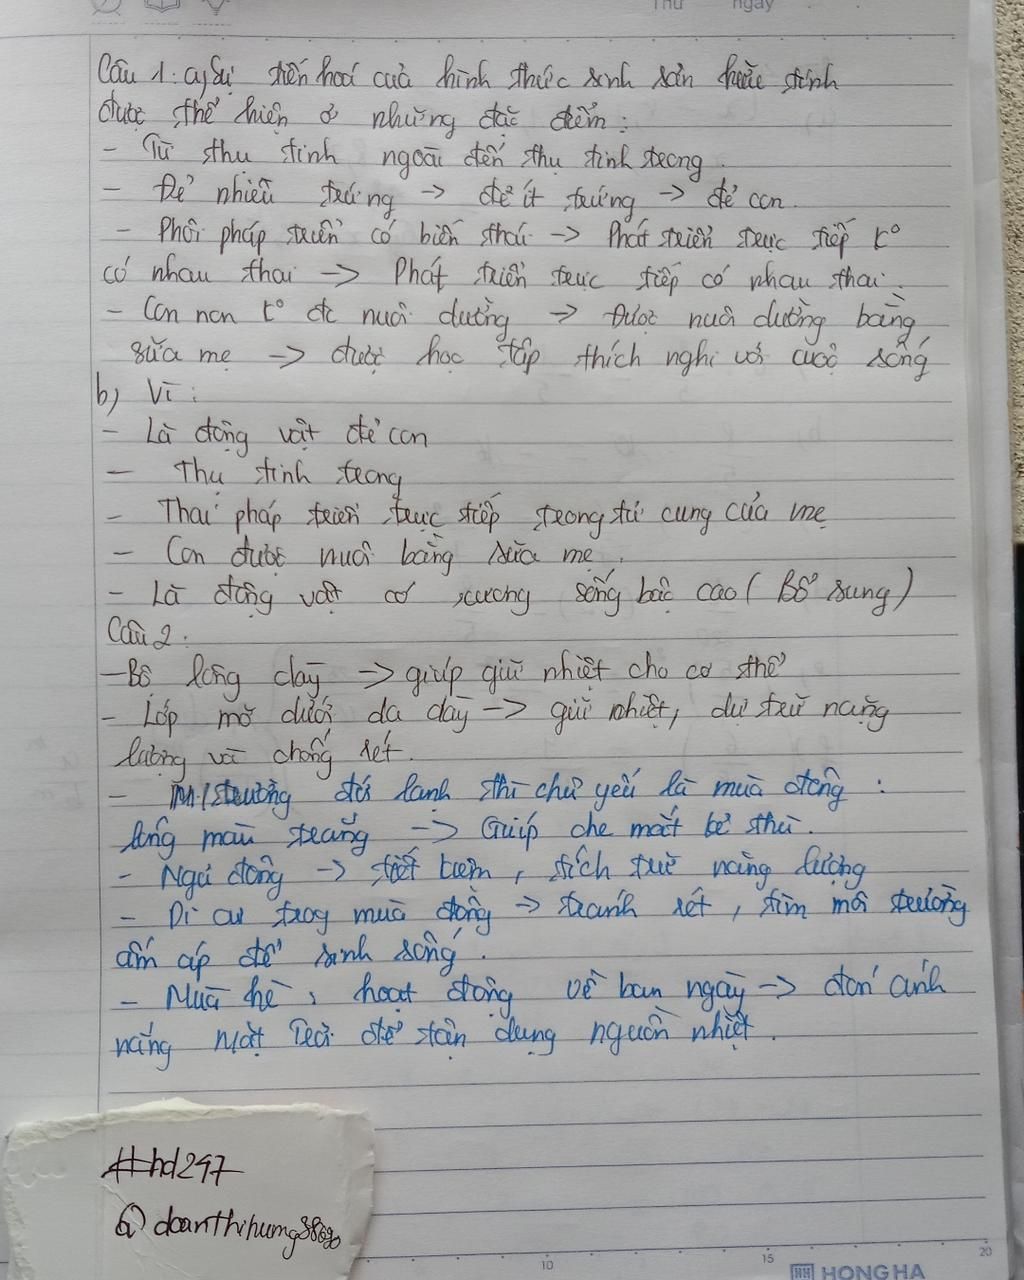 Thứ ngày
Câu 1: a) Sự tiến hoá của hình thức sinh sản hữu tính
được thể hiện ở những đặc điểm:
- Từ thụ tinh ngoài đến thụ tinh trong.
- Đẻ nhiều trứng -> đẻ ít trứng -> đẻ con.
- Phôi pháp triển có biến thái -> Phát triển trực tiếp k°
có nhau thai -> Phát triển trực tiếp có nhau thai.
- Con non k° đc nuôi dưỡng -> Được nuôi dưỡng bằng
sữa mẹ -> được học tập thích nghi với cuộc sống
b) Vì:
- Là động vật đẻ con
- Thụ tinh trong
- Thai pháp triển trực tiếp trong tử cung của mẹ
- Con được nuôi bằng sữa mẹ.
- Là động vật có xương sống bậc cao ( Bổ sung )
Câu 2.
- Bộ lông dày -> giúp giữ nhiệt cho cơ thể
- Lớp mỡ dưới da dày -> giữ nhiệt, dự trữ năng
lượng và chống rét.
- M/trường đới lạnh thì chủ yếu là mùa đông :
lông màu trắng -> Giúp che mắt kẻ thù.
- Ngủ đông -> tiết kiệm, tích trữ năng lượng
- Di cư trog mùa đông -> tránh rét, tìm môi trường
ấm áp để sinh sống.
- Mùa hè, hoạt động về ban ngày -> đón ánh
nắng Mặt Trời để tận dụng nguồn nhiệt.
#hd247
10 15 20
HONG HA